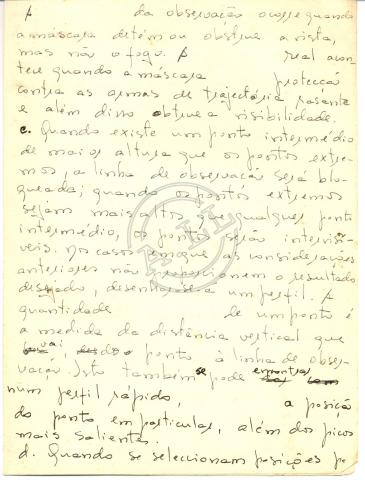 A da observação ocorre quando
a máscara detém ou obstrue a vista,
mas não o fogo. A real acon-
tece quando a máscara protecção
contra as armas de trajectória rasante
e além disso obstrue a visibilidade.
c. Quando existe um ponto intermédio
de maior altura que os pontos extre-
mos, a linha de observação será blo-
queada; quando os pontos extremos
sejam mais altos que qualquer ponto
intermédio, os pontos serão intervisí-
veis. Nos casos em que as considerações
anteriores não proporcionem o resultado
desejado, desenhar-se-a um perfil. A
quantidade de um ponto é
a medida da distância vertical que
vai, do ponto à linha de obser-
vação. Isto também se pode
num perfil rápido, a posição
do ponto em particular, além dos picos
mais salientes.
d. Quando se seleccionam posições po